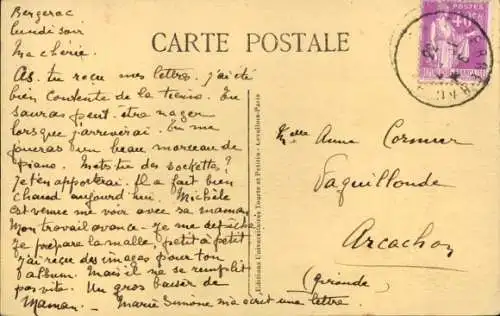 Bergerac
lundi soir
Ma chérie.
As. tu reçu mes lettres. j'ai été
bien contente de la tienne. Tu
sauras peut. être nager
lorsque j'arriverai. Tu me
joueras un beau morceau de
piano. Mets. tu des sockettes?
Je t'en apporterai. Il a fait bien
chaud aujourd'hui. Michèle
est venue me voir avec sa maman.
Mon travail avance. Je me dépêche
Je prépare la malle, petit à petit
j'ai reçu des images pour ton
album. Mais il ne se remplit
pas vite. Un gros baiser de
Maman. Marie Simone m'a écrit une lettre.
CARTE POSTALE
Editions Universitaires Tourte et Petitin - Levallois-Paris
Melle Anne Cormier
Arcachon
(Gironde)